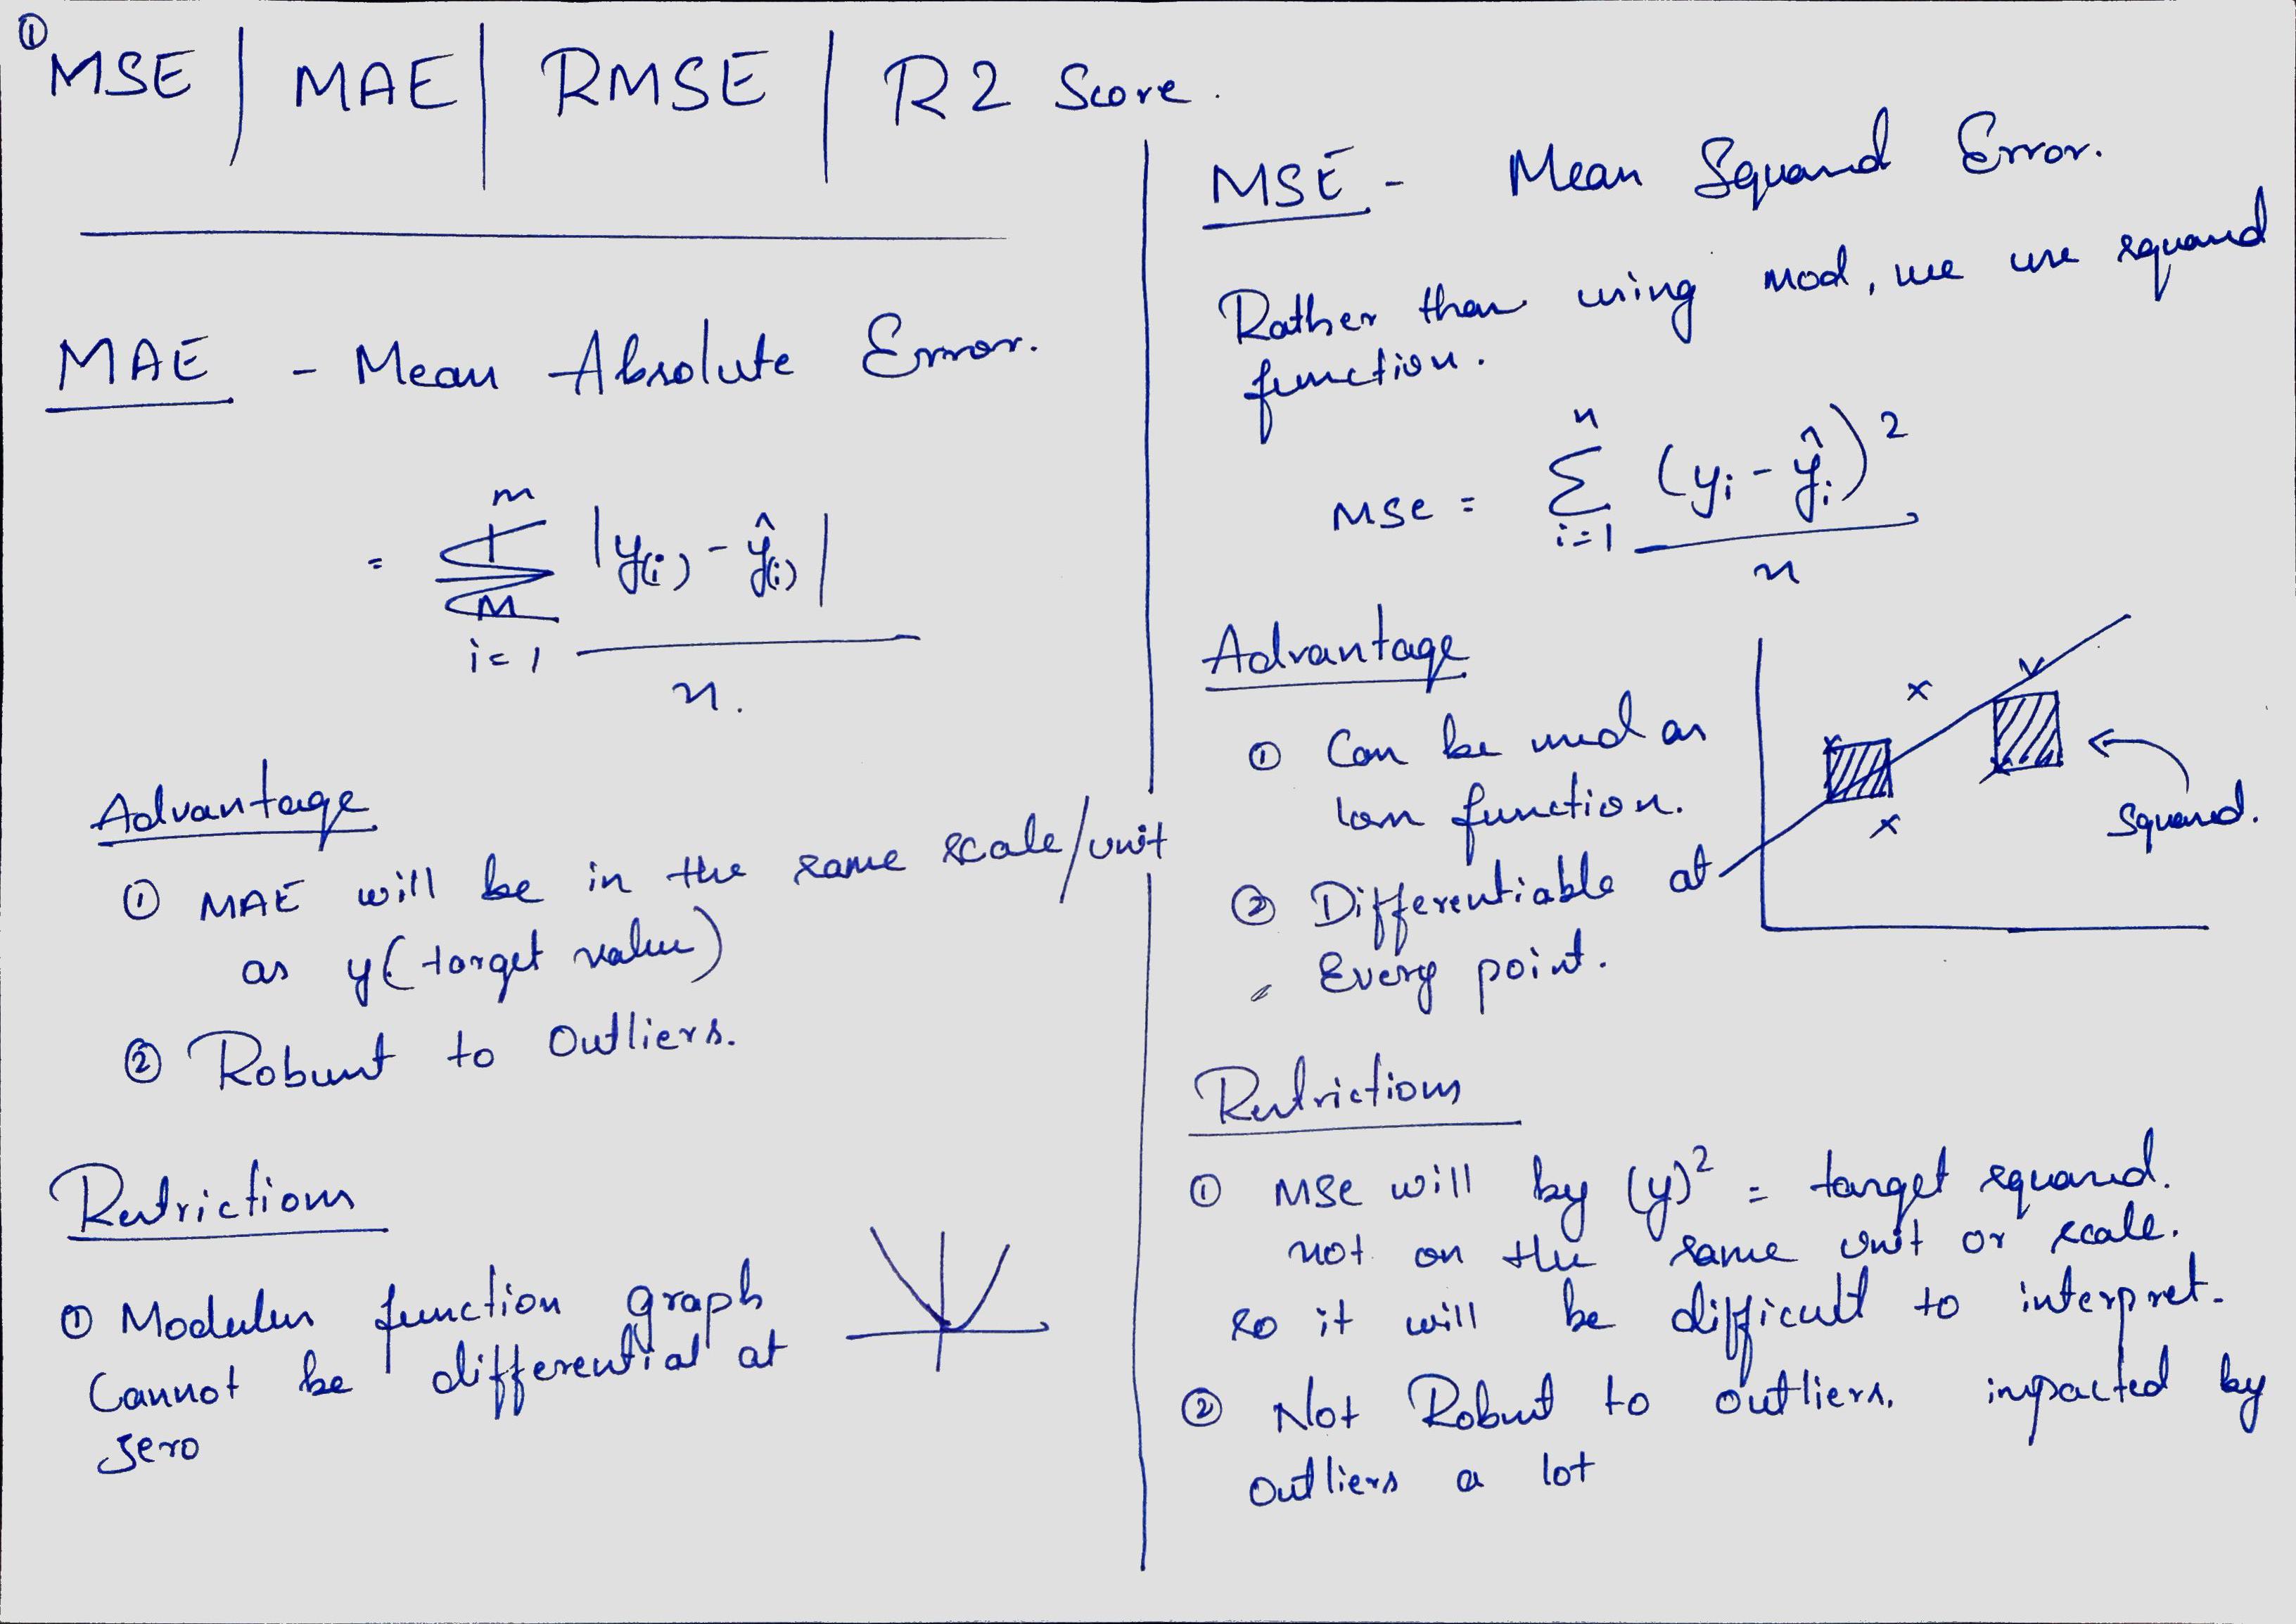 ①
MSE | MAE | RMSE | R2 Score.
MAE - Mean Absolute Error.
m
= ∑ |y(i) - ŷ(i)|
i=1
n.
Advantage
① MAE will be in the same scale/unit
as y (target value)
② Robust to Outliers.
Restrictions
① Modulus function graph
Cannot be differential at
zero
MSE - Mean Squared Error.
Rather than using mod, we use squared
function.
n
MSE = ∑ (yi - ŷi)²
i=1
n
Advantage
① Can be used as
loss function.
② Differentiable at
Every point.
Squared.
Restrictions
① MSE will by (y)² = target squared.
not on the same unit or scale.
so it will be difficult to interpret.
② Not Robust to outliers. impacted by
outliers a lot